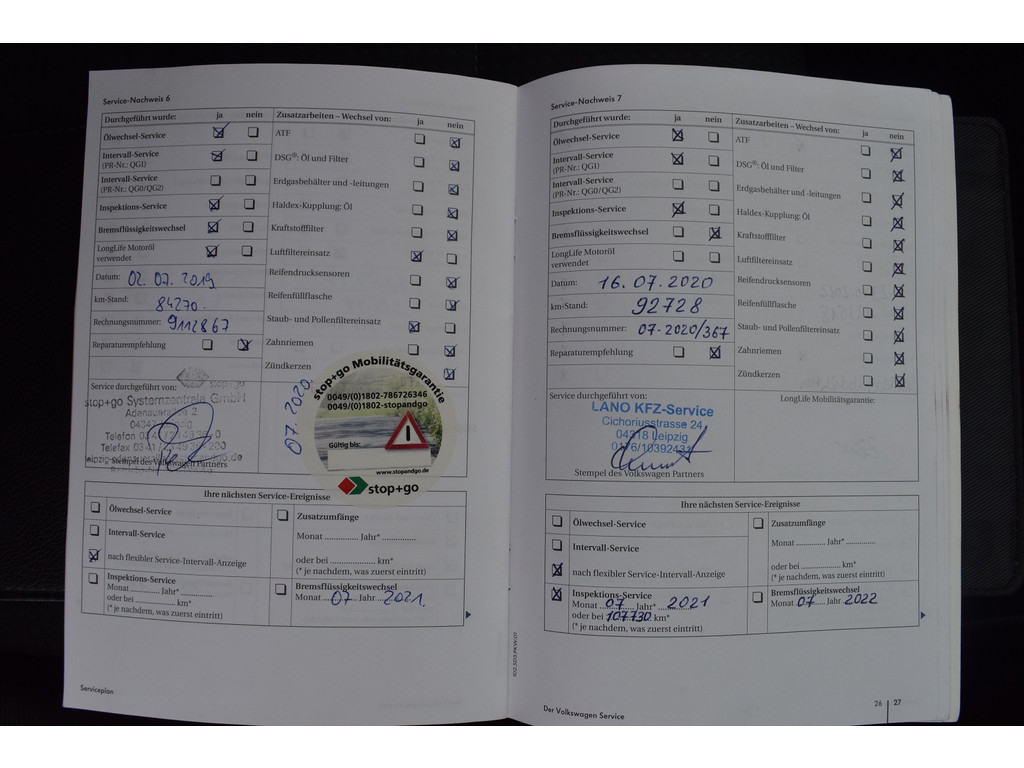 Service-Nachweis 6
Durchgeführt wurde: ja nein
Ölwechsel-Service
Intervall-Service
(PR-Nr.: QG1)
Intervall-Service
(PR-Nr.: QG0/QG2)
Inspektions-Service
Bremsflüssigkeitswechsel
LongLife Motoröl
verwendet
Datum: 02.07.2019
km-Stand: 84270.
Rechnungsnummer: 9112867
Reparaturempfehlung
Zusatzarbeiten – Wechsel von: ja nein
ATF
DSG®: Öl und Filter
Erdgasbehälter und -leitungen
Haldex-Kupplung: Öl
Kraftstofffilter
Luftfiltereinsatz
Reifendrucksensoren
Reifenfüllflasche
Staub- und Pollenfiltereinsatz
Zahnriemen
Zündkerzen
Service durchgeführt von:
stop+go
stop+go Systemzentrale GmbH
Stempel des Volkswagen Partners
07. 2020.
stop+go Mobilitätsgarantie
0049/(0)1802-786726346
0049/(0)1802-stopandgo
Gültig bis:
www.stopandgo.de
stop+go
Ihre nächsten Service-Ereignisse
Ölwechsel-Service
Intervall-Service
nach flexibler Service-Intervall-Anzeige
Inspektions-Service
Monat ........... Jahr* ...............
oder bei .................... km*
(* je nachdem, was zuerst eintritt)
Zusatzumfänge
Monat ............. Jahr* ...............
oder bei .................... km*
(* je nachdem, was zuerst eintritt)
Bremsflüssigkeitswechsel
Monat 07 Jahr 2021.
Serviceplan
Service-Nachweis 7
Durchgeführt wurde: ja nein
Ölwechsel-Service
Intervall-Service
(PR-Nr.: QG1)
Intervall-Service
(PR-Nr.: QG0/QG2)
Inspektions-Service
Bremsflüssigkeitswechsel
LongLife Motoröl
verwendet
Datum: 16.07.2020
km-Stand: 92728
Rechnungsnummer: 07-2020/367
Reparaturempfehlung
Zusatzarbeiten – Wechsel von: ja nein
ATF
DSG®: Öl und Filter
Erdgasbehälter und -leitungen
Haldex-Kupplung: Öl
Kraftstofffilter
Luftfiltereinsatz
Reifendrucksensoren
Reifenfüllflasche
Staub- und Pollenfiltereinsatz
Zahnriemen
Zündkerzen
Service durchgeführt von:
LANO KFZ-Service
Cichoriusstrasse 24
04318 Leipzig
0176/10392431
Stempel des Volkswagen Partners
LongLife Mobilitätsgarantie:
Ihre nächsten Service-Ereignisse
Ölwechsel-Service
Intervall-Service
nach flexibler Service-Intervall-Anzeige
Inspektions-Service
Monat 07 Jahr* 2021
oder bei 107730 km*
(* je nachdem, was zuerst eintritt)
Zusatzumfänge
Monat ............. Jahr* ...............
oder bei .................... km*
(* je nachdem, was zuerst eintritt)
Bremsflüssigkeitswechsel
Monat 07 Jahr 2022
Der Volkswagen Service
26 27